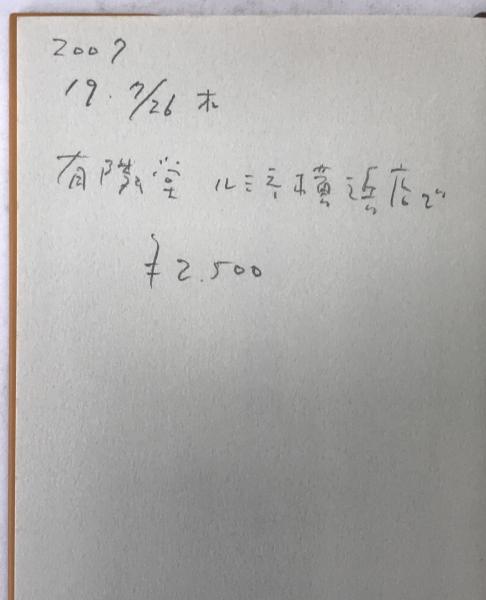 2007
19. 7/26 木
有隣堂 ルミネ横浜店で
¥2.500